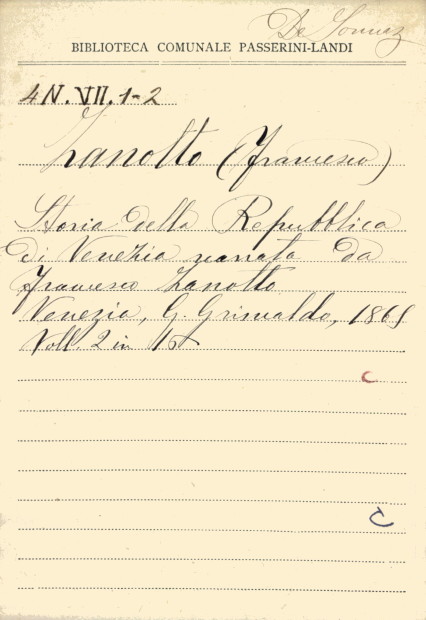 De
BIBLIOTECA COMUNALE PASSERINI-LANDI
4N.VII.1-2
Zanotto (Francesco)
Storia della Repubblica
di Venezia narrata da
Francesco Zanotto
Venezia, G. Grimaldo, 1864
Voll. 2 in
C
C